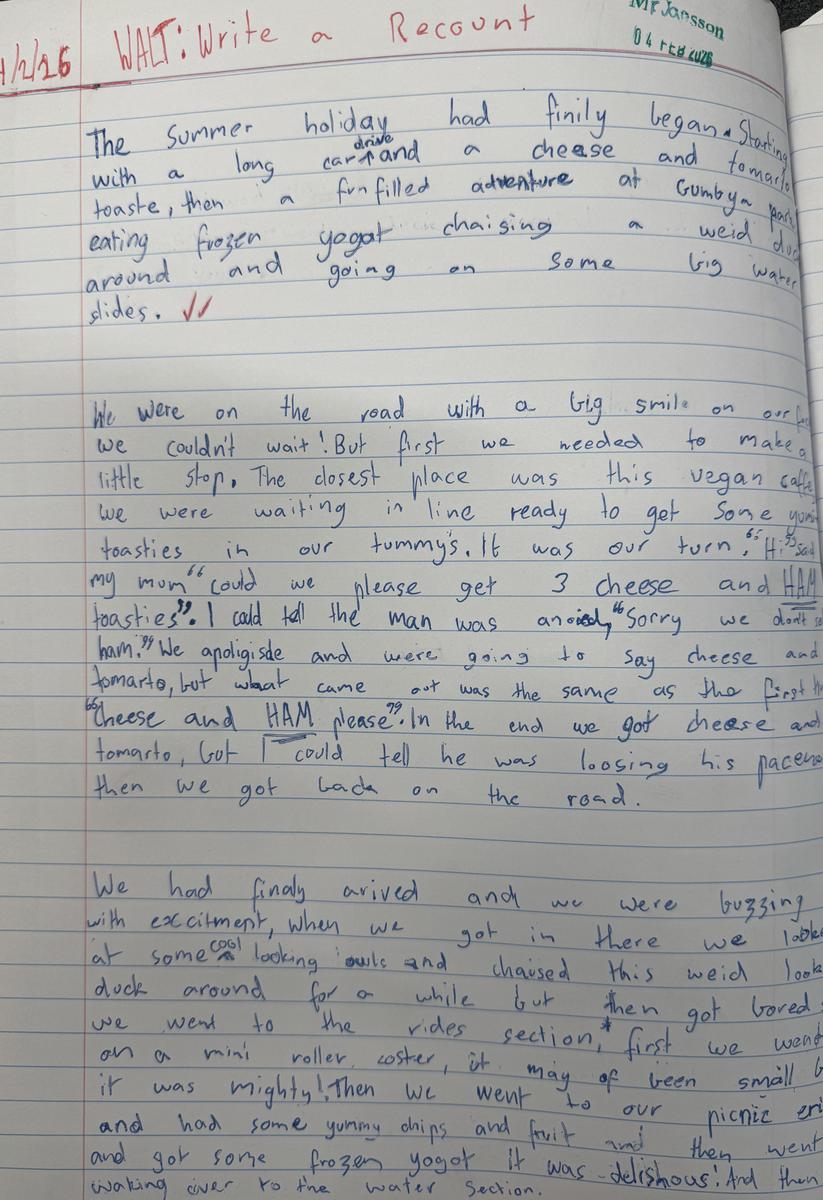 WALT: Write a Recount
Mr Jansson
04 FEB 2026
/2/26
The summer holiday had finily began. Starting
with a long car drive and a cheese and tomarto
toaste, then a fun filled adventure at Gumbya park
eating frozen yogat chaising a weid duc
around and going on some big water
slides.
We were on the road with a big smile on our
we couldn't wait! But first we needed to make a
little stop. The closest place was this vegan caffe
We were waiting in line ready to get some
toasties in our tummy's. It was our turn. "Hi" said
my mum "could we please get 3 cheese and HAM
toasties". I could tell the man was anoied, "Sorry we don't
ham." We apoligisde and were going to say cheese and
tomarto, but what came out was the same as the first
"Cheese and HAM please". In the end we got cheese and
tomarto, but I could tell he was loosing his
then we got back on the road.
We had finaly arived and we were buzzing
with exccitment, when we got in there we
at some cool looking owls and chaised this weid look
duck around for a while but then got bored
we went to the rides section,* first we went
on a mini roller coster, it may of been small
it was mighty! Then we went to our picnic
and had some yummy chips and fruit and then went
and got some frozen yogot it was delishous! And then
waking over to the water section.